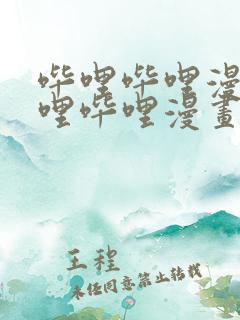 哔哩哔哩漫
哩哔哩漫畫
王程
未经同意禁止转载